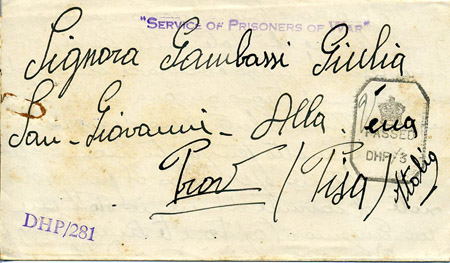 "SERVICE OF PRISONERS OF WAR"
Signora Gambassi Giulia
San-Giovanni-Alla. Vena
PASSED
DHP/3
Prov (Pisa) Italia
DHP/281